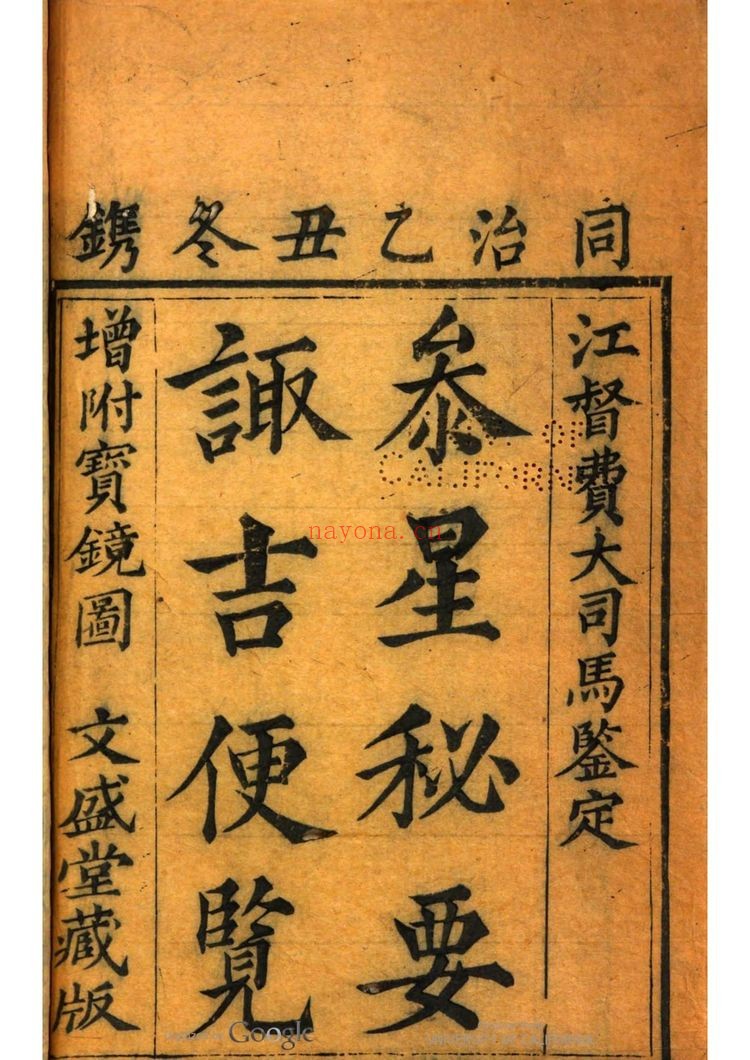 同治乙丑冬鐫
江督費大司馬鑒定
叅星秘要
諏吉便覽
增附寶鏡圖 文盛堂藏版
CALIFORN
nayona.cn
Google